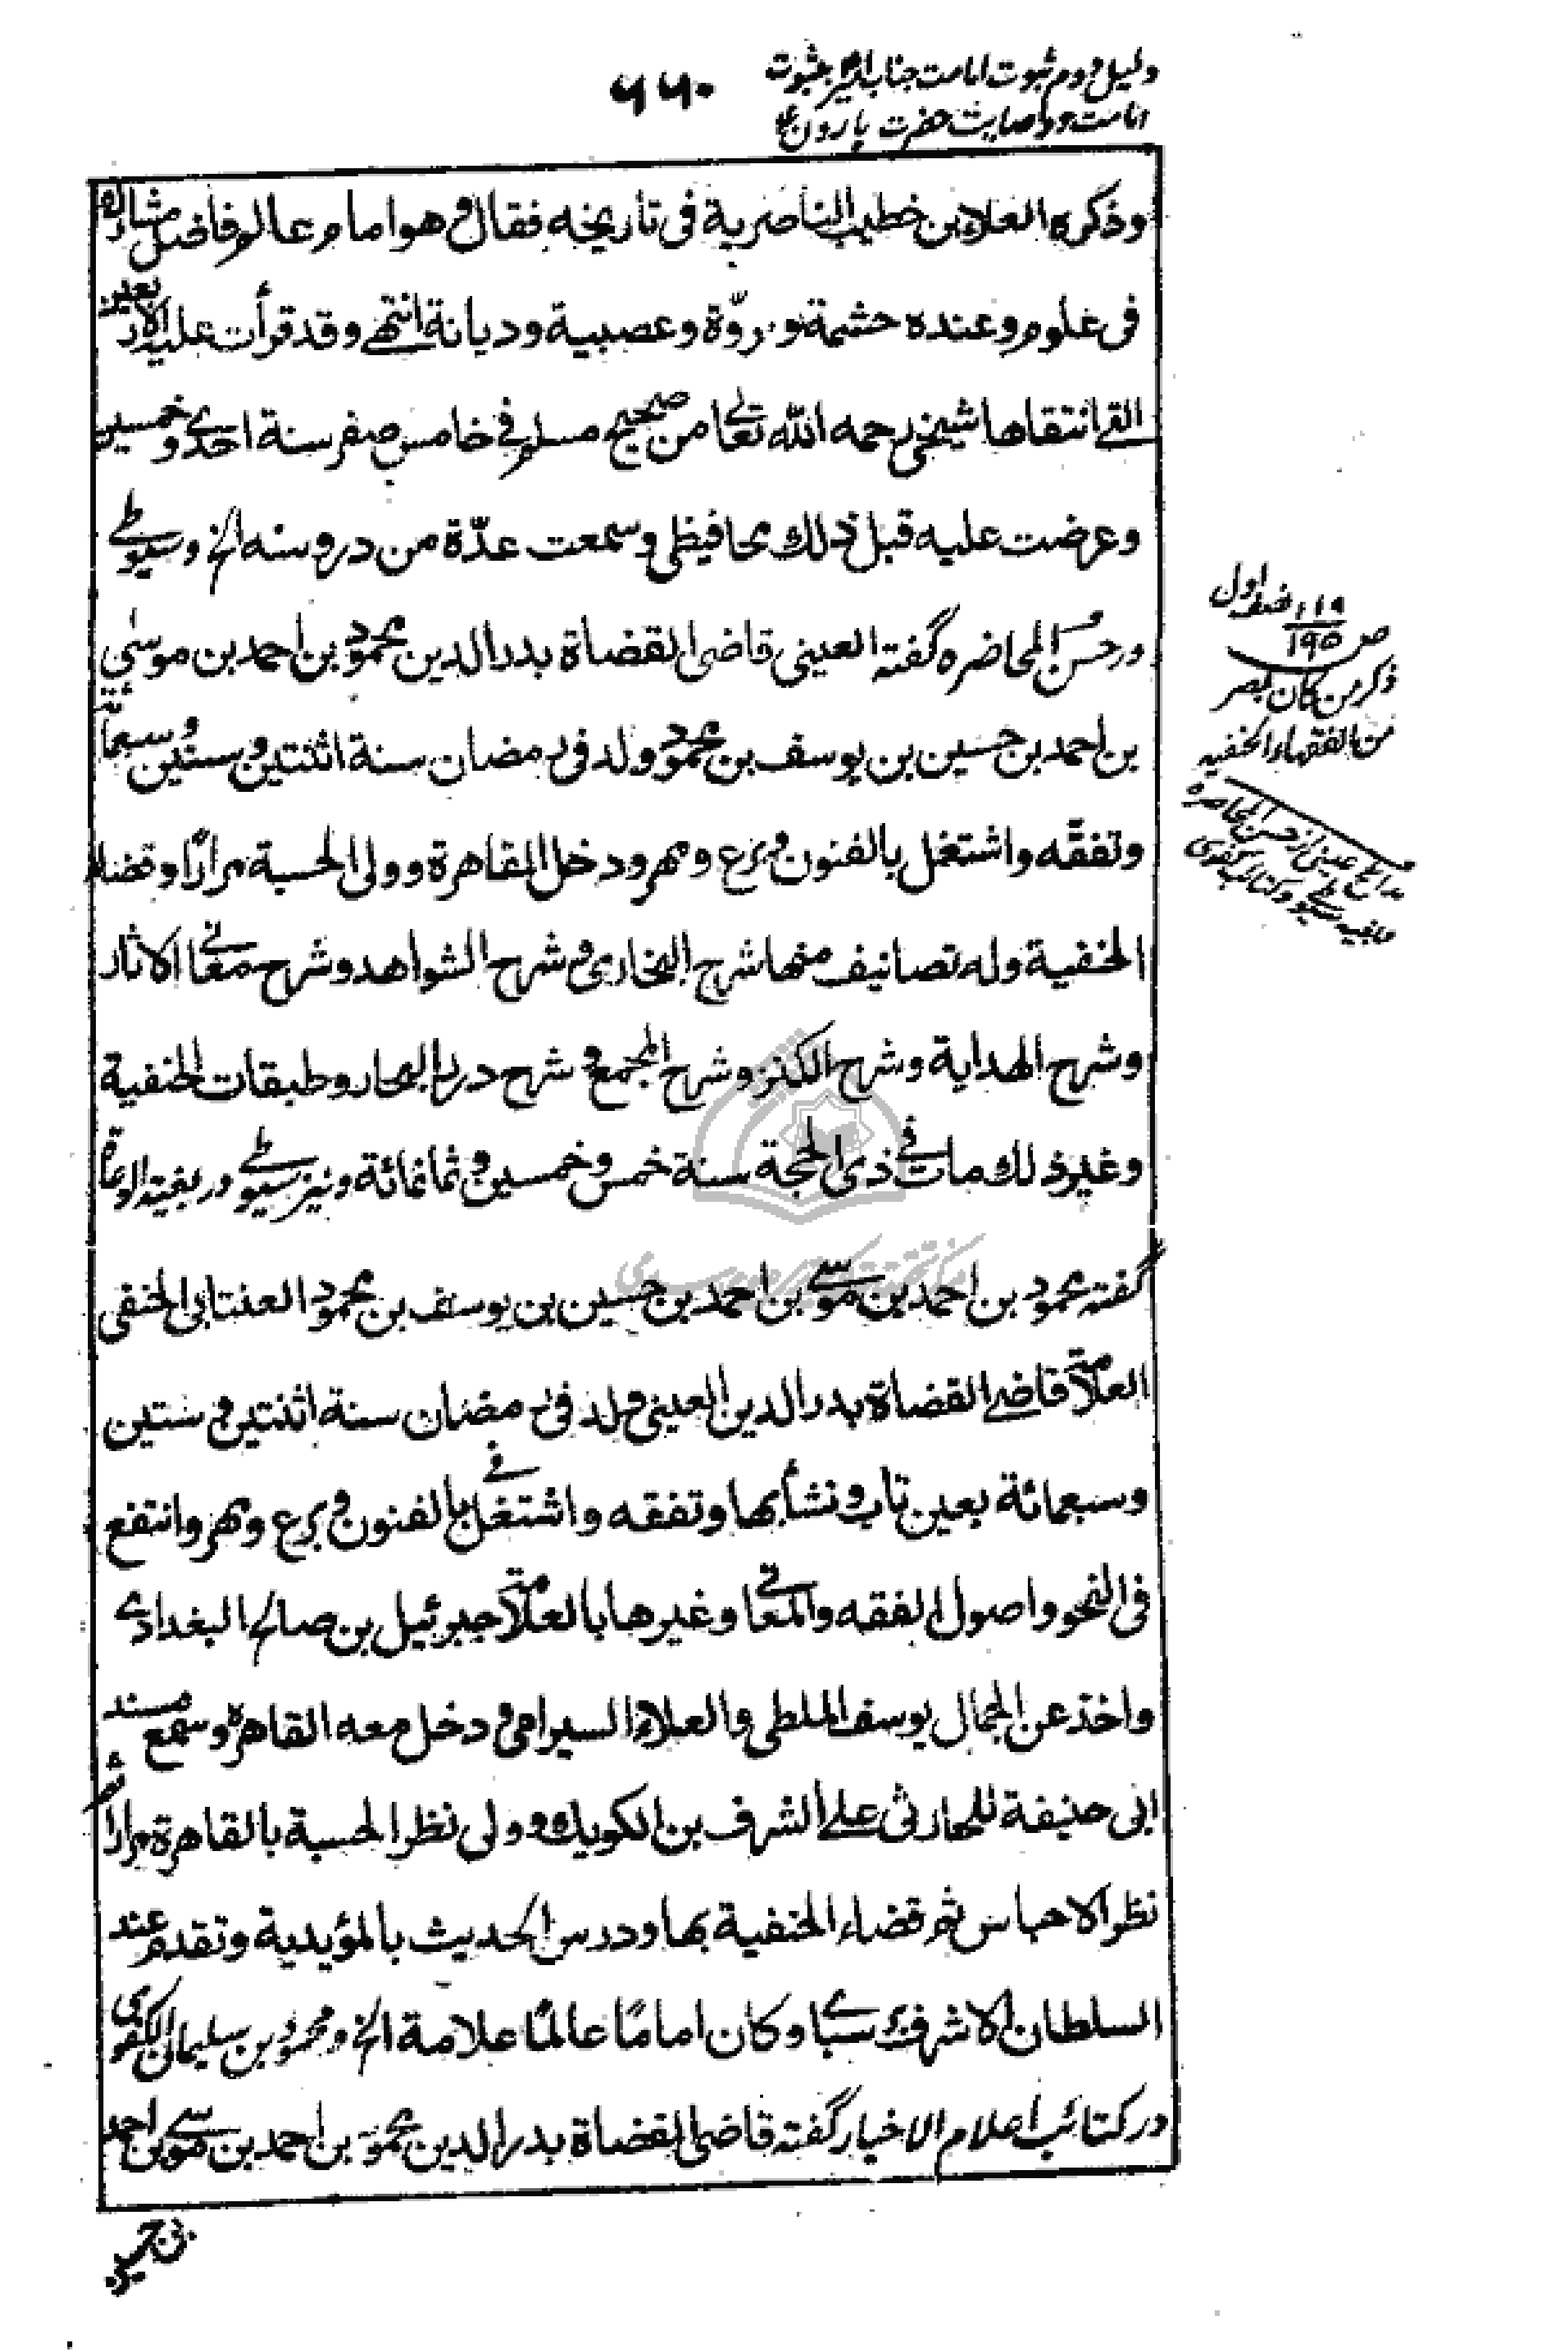 دلیل دوم ثبوت امامت جناب امیرؑ بثبوت
امامت و وصایت حضرت ہارونؑ
۶۶۰
وذكره العلاء بن خطيب الناصرية فى تاريخه فقال وهو امام عالم فاضل مشارك
فى علوم وعنده حشمة ومروّة وعصبية وديانة انتهى وقد قرأت عليه الاربعين
التى انتقاها شيخى رحمه الله تعالى من صحيح مسلم فى خامس صفر سنة احدى وخمسين
وعرضت عليه قبل ذلك محافيظى وسمعت عدّة من دروسه الخ وسیوطی
در حسن المحاضره گفته العينى قاضى القضاة بدر الدين محمود بن احمد بن موسى
بن احمد بن حسين بن يوسف بن محمود ولد فى رمضان سنة اثنتين وستين وسبعمائة
وتفقّه واشتغل بالفنون وبرع ومهر ودخل القاهرة وولى الحسبة مرارًا وقضاء
الحنفية وله تصانيف منها شرح البخارى وشرح الشواهد وشرح معانى الاثار
وشرح الهداية وشرح الكنز وشرح المجمع وشرح درر البحار وطبقات الحنفية
وغير ذلك مات فى ذى الحجة سنة خمس وخمسين وثمانمائة ونیز سیوطی در بغیة الوعاة
گفته محمود بن احمد بن موسى بن احمد بن حسين بن يوسف بن محمود العنتابى الحنفى
العلامة قاضى القضاة بدر الدين العينى ولد فى رمضان سنة اثنتين وستين
وسبعمائة بعين تاب ونشأ بها وتفقه واشتغل فى بالفنون وبرع ومهر وانتفع
فى النحو واصول الفقه والمعانى وغيرها بالعلامة جبرئيل بن صالح البغدادى
واخذ عن الجمال يوسف الملطى والعلاء السيرامى ودخل معه القاهرة وسمع مسند
ابى حنيفة للحارثى على الشرف بن الكويك وولى نظر الحسبة بالقاهرة مرارا ثم
نظر الاحباس ثم قضاء الحنفية بها ودرس الحديث بالمؤيدية وتقدم عند
السلطان الاشرف برسباى وكان امامًا عالمًا علامة الخ ومحمود بن سليمان الكفوى
در كتائب اعلام الاخیار گفته قاضى القضاة بدر الدين محمود بن احمد بن موسى بن احمد
بن حسین
ص ۱۱۹/۱۹۵ نصف اول
ذکر من کان بمصر
من الفقهاء الحنفیه
مدائح عینی از حسن المحاضره
و بغیه سیوطی و کتائب کفوی